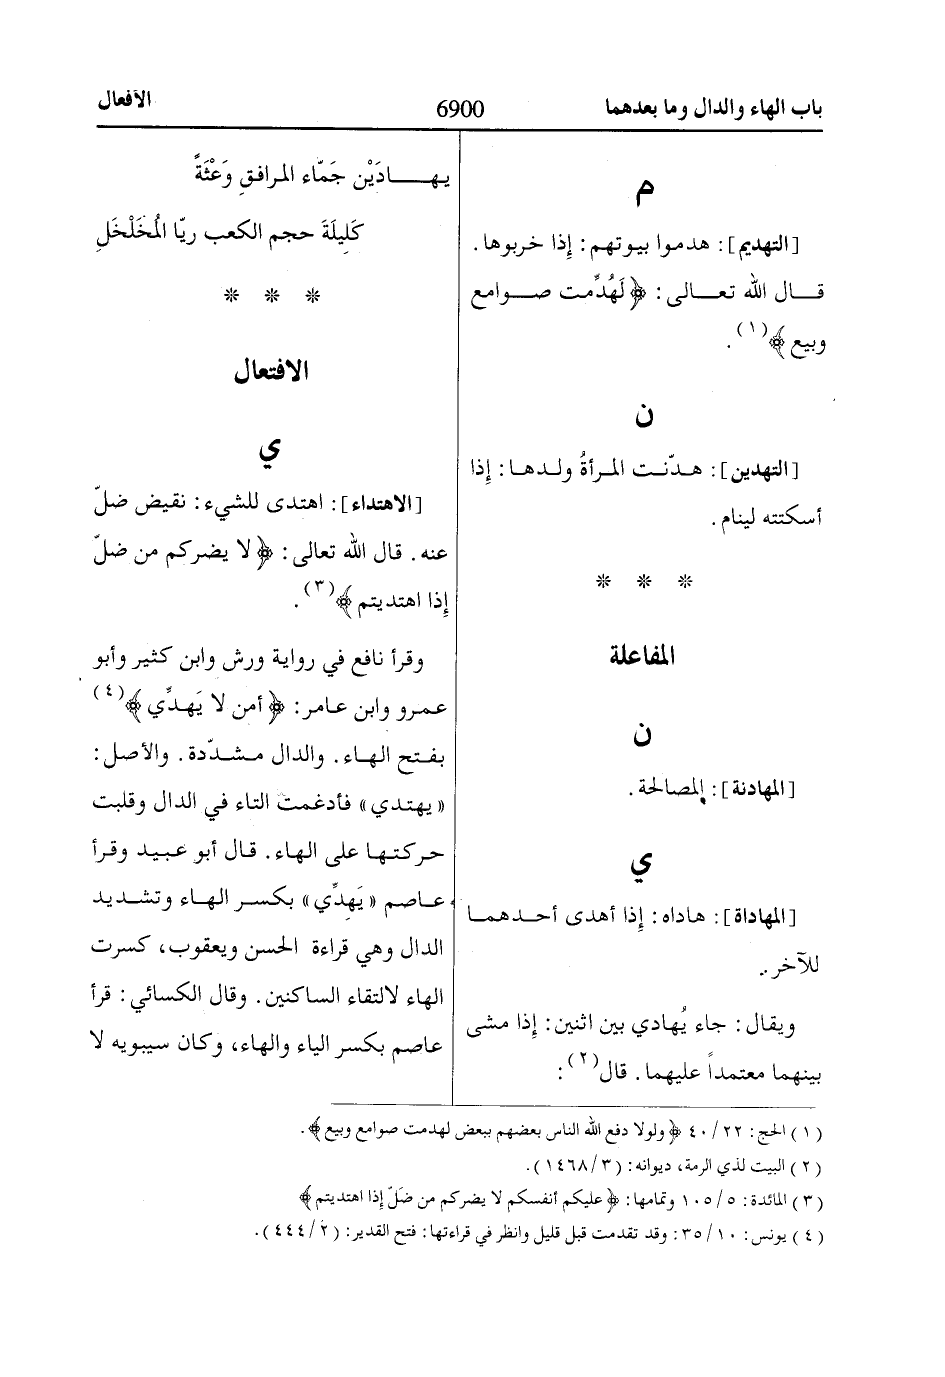 باب الهاء والدال وما بعدهما
6900
الأفعال
م
[التهديم]: هدموا بيوتهم: إذا خربوها.
قال الله تعالى: ﴿لَهُدِّمت صوامع
وبيع﴾(١).
ن
[التهدين]: هدّنت المرأةُ ولدها: إذا
أسكتته لينام.
* * *
المفاعلة
ن
[المهادنة]: المصالحة.
ي
[المهاداة]: هاداه: إذا أهدى أحدهما
للآخر.
ويقال: جاء يُهادي بين اثنين: إذا مشى
بينهما معتمداً عليهما. قال(٢):
يهادَيْن جَمّاء المرافقِ وَعْثَةً
كَلِيلَةَ حجم الكعب ريّا المُخَلْخَلِ
* * *
الافتعال
ي
[الاهتداء]: اهتدى للشيء: نقيض ضلّ
عنه. قال الله تعالى: ﴿لا يضركم من ضلّ
إذا اهتديتم﴾(٣).
وقرأ نافع في رواية ورش وابن كثير وأبو
عمرو وابن عامر: ﴿أمن لا يَهدِّي﴾(٤)
بفتح الهاء. والدال مشدّدة. والأصل:
«يهتدي» فأدغمت التاء في الدال وقلبت
حركتها على الهاء. قال أبو عبيد وقرأ
عاصم «يَهِدِّي» بكسر الهاء وتشديد
الدال وهي قراءة الحسن ويعقوب، كسرت
الهاء لالتقاء الساكنين. وقال الكسائي: قرأ
عاصم بكسر الياء والهاء، وكان سيبويه لا
(١) الحج: ٢٢/ ٤٠ ﴿ولولا دفع الله الناس بعضهم ببعض لهدمت صوامع وبيع﴾.
(٢) البيت لذي الرمة، ديوانه: (٣/ ١٤٦٨).
(٣) المائدة: ٥/ ١٠٥ وتمامها: ﴿عليكم أنفسكم لا يضركم من ضَلّ إذا اهتديتم﴾
(٤) يونس: ١٠/ ٣٥: وقد تقدمت قبل قليل وانظر في قراءتها: فتح القدير: (٢/ ٤٤٤).